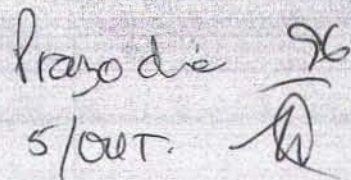 Prazo dia 96
5/OUT.